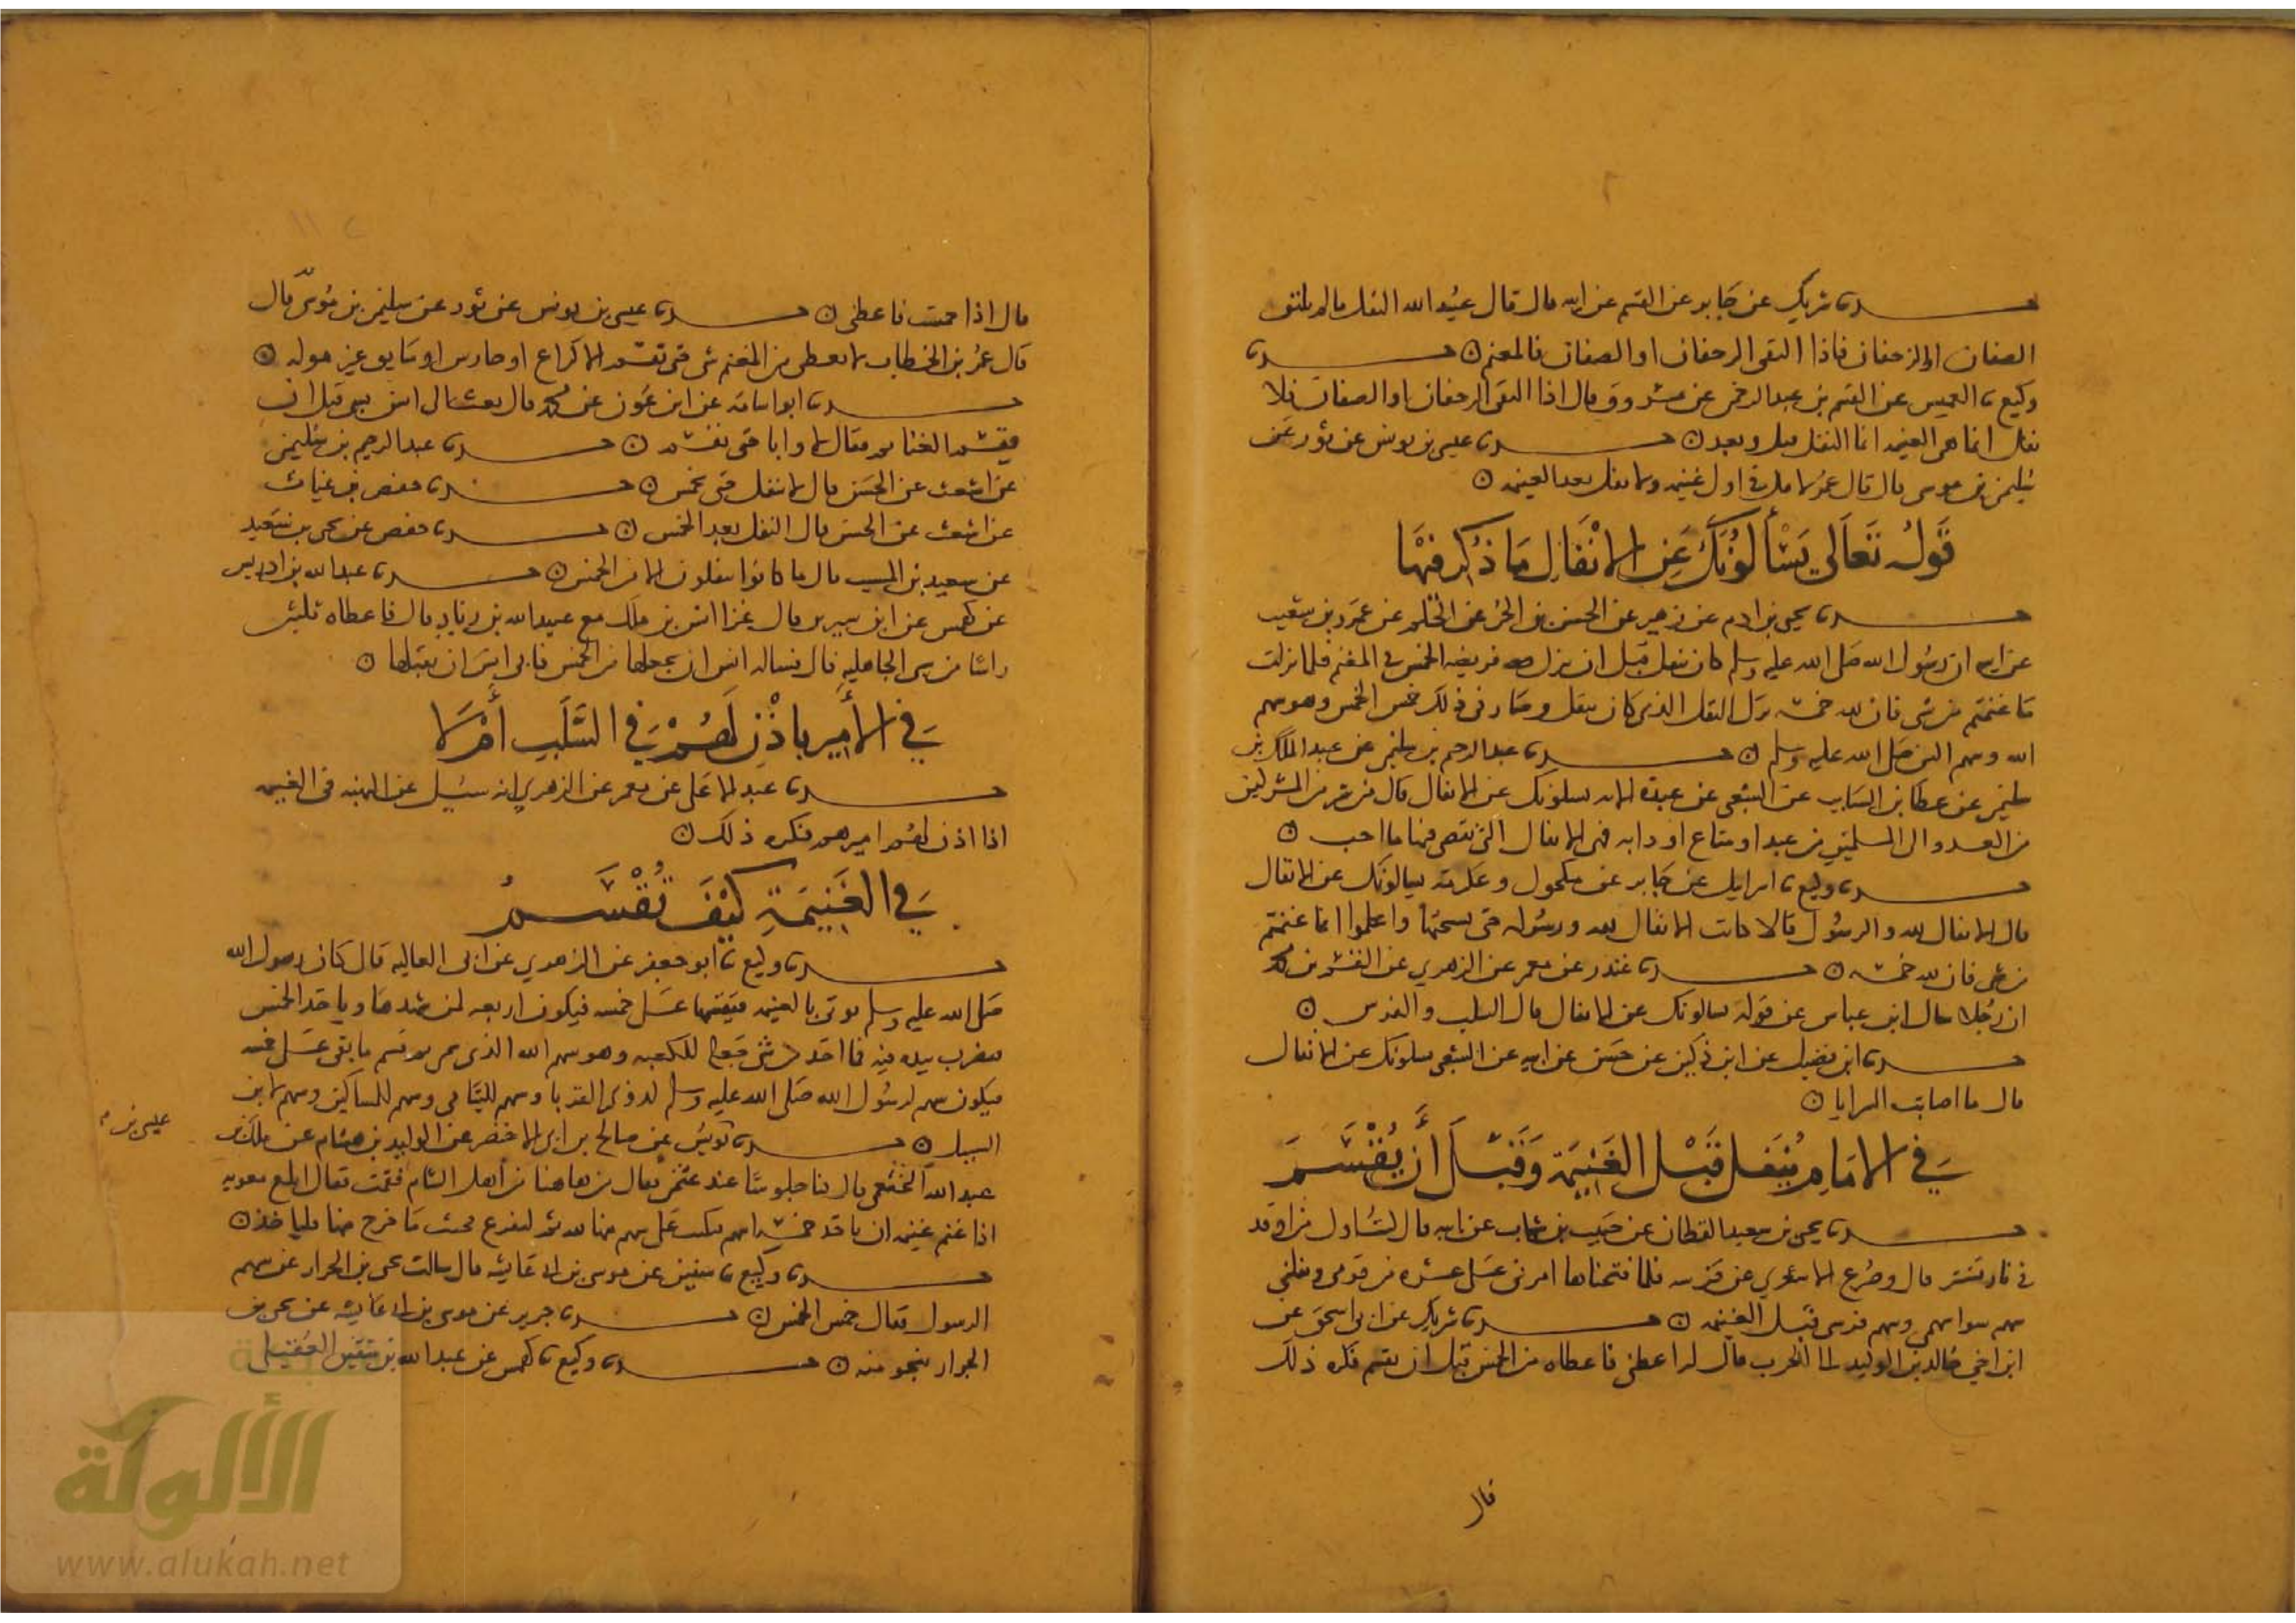 حدثنا شريك عن جابر عن القسم عن ابيه قال قال عبد الله النفل ما لم يلتق
الصفان او الزحفان فاذا التقى الزحفان او الصفان فالمغنم ○ حدثنا
وكيع نا العميس عن القسم بن عبد الرحمن عن مسروق قال اذا التقى الزحفان او الصفان فلا
نفل انما هي الغنيمه انما النفل قبل وبعد ○ حدثنا عيسى بن يونس عن ثور عن
سليمن بن موسى قال قال عمر لا نفل في اول غنيمه ولا نفل بعد الغنيمه ○
قوله تعالى يسألونك عن الانفال ما ذكر فيها
حدثنا يحيى بن ادم عن زهير عن الحسن بن الحر عن الحكم عن عمرو بن شعيب
عن ابيه ان رسول الله صلى الله عليه وسلم كان ينفل قبل ان تنزل فريضه الخمس في المغنم فلما نزلت
ما غنمتم من شي فان لله خمسه ترك النفل الذي كان ينفل وصار في ذلك خمس الخمس وهو سهم
الله وسهم النبي صلى الله عليه وسلم ○ حدثنا عبد الرحيم بن سليمن عن عبد الملك بن
سليمن عن عطا بن السايب عن الشعبي عن عبدة الايه يسلونك عن الانفال قال من شر من المشركين
من العدو الى المسلمين من عبد او متاع او دابه فهي الانفال التي يقضي فيها ما احب ○
حدثنا وكيع نا اسرايل عن جابر عن مكحول وعكرمه يسالونك عن الانفال
قال الانفال لله والرسول قالا كانت الانفال لله ورسوله حتى نسختها واعلموا انما غنمتم
من شي فان لله خمسه ○ حدثنا غندر عن معمر عن الزهري عن القسم بن محمد
ان رجلا سال ابن عباس عن قوله يسالونك عن الانفال قال السلب والفرس ○
حدثنا ابن فضيل عن ابن ذكين عن حسن عن ابيه عن الشعبي يسلونك عن الانفال
قال ما اصابت السرايا ○
في الامام ينفل قبل الغنيمة وقبل أن يقسم
حدثنا يحيى بن سعيد القطان عن حبيب بن شهاب عن ابيه قال كنت اول من اوقد
في نار تستر قال وصرع الاشعري عن فرسه فلما فتحناها امرني على عشره من قومي ونفلني
سهم سوا سهمي وسهم فرسي قبل الغنيمه ○ حدثنا شريك عن ابي اسحق عن
ابن اخي خالد بن الوليد لما الحرب قال له اعطني فاعطاه من الخمس قبل ان يقسم فكره ذلك
قال
قال اذا خمست فاعطني ○ حدثنا عيسى بن يونس عن ثور عن سليمن بن موسى قال
قال عمر بن الخطاب لا يعطى من المغنم شي حتى تقسم الا لراع او حارس او سايق غير موله ○
حدثنا ابو اسامه عن ابن عون عن محمد قال بعث الى انس بشي قبل ان
يقسم الغنايم فقال لا وابا حتى تقسم ○ حدثنا عبد الرحيم بن سليمن
عن اشعث عن الحسن قال لا نفل حتى يخمس ○ حدثنا حفص بن غياث
عن اشعث عن الحسن قال النفل بعد الخمس ○ حدثنا حفص عن يحيى بن سعيد
عن سعيد بن المسيب قال ما كانوا ينفلون الا من الخمس ○ حدثنا عبد الله بن ادريس
عن كهمس عن ابن سيرين قال غزا انس بن ملك مع عبيد الله بن زياد قال فاعطاه ثلثين
راسا من سبي الجاهليه قال فساله انس ان يجعلها من الخمس فابى انس ان يقبلها ○
في الأمير يأذن لهم في السلب أم لا
حدثنا عبد الاعلى عن معمر عن الزهري انه سئل عن النهبه في الغنيمه
اذا اذن لهم اميرهم فكره ذلك ○
في الغنيمة كيف تقسم
حدثنا وكيع نا ابو جعفر عن الزهري عن ابي العاليه قال كان رسول الله
صلى الله عليه وسلم يوتى بالغنيمه فيقسمها على خمسه فيكون اربعه لمن شهدها وياخذ الخمس
فيضرب بيده فيه فما اخذ من شي جعله للكعبه وهو سهم الله الذي سمى ثم يقسم ما بقي على خمسه
فيكون سهم لرسول الله صلى الله عليه وسلم لذوي القربا وسهم لليتامى وسهم للمساكين وسهم لابن
السبيل ○ حدثنا يونس عن صالح بن ابي الاخضر عن الوليد بن هشام عن ملك بن
عيسى بن
عبد الله الخثعمي قال كنا جلوسا عند عثمن فقال من هاهنا من أهل الشام فقمت فقال ابلغ معويه
اذا غنم غنيمه ان ياخذ خمسه اسهم فيكتب على سهم منها لله ثم ليقرع فحيث ما خرج منها فلياخذ ○
حدثنا وكيع نا سفين عن موسى بن ابي عايشه قال سالت يحيى بن الجزار عن سهم
الرسول فقال خمس الخمس ○ حدثنا جرير عن موسى بن ابي عايشه عن يحيى بن
الجزار بنحو منه ○ حدثنا وكيع نا كهمس عن عبد الله بن شقيق العقيلي
الألوكة
www.alukah.net